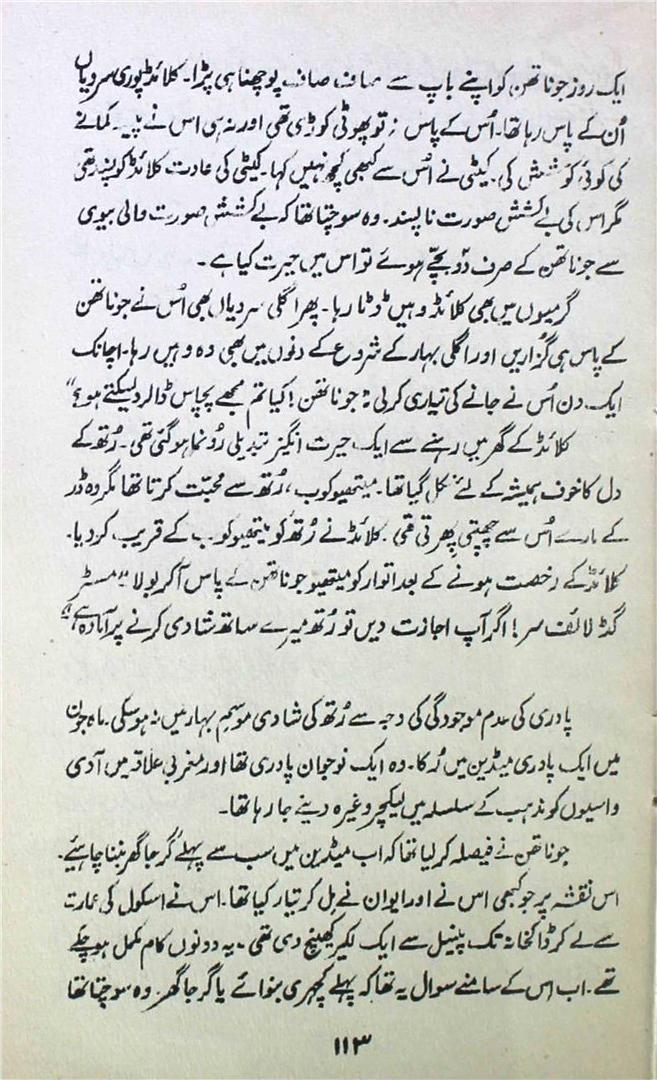 ایک روز جوناتھن کو اپنے باپ سے صاف صاف پوچھنا ہی پڑا۔ کلائڈ پوری سردیاں
اُن کے پاس رہا تھا۔ اُس کے پاس نہ تو پھوٹی کوڑی تھی اور نہ ہی اس نے پیسہ کمانے
کی کوئی کوشش کی۔ کیٹی نے اُس سے کبھی کچھ نہیں کہا۔ کیٹی کی عادت کلائڈ کو پسند تھی
مگر اس کی بے کشش صورت ناپسند۔ وہ سوچتا تھا کہ بے کشش صورت والی بیوی
سے جوناتھن کے صرف دو بچّے ہوئے تو اس میں حیرت کیا ہے۔
گرمیوں میں بھی کلائڈ وہیں ڈٹا رہا۔ پھر اگلی سردیاں بھی اُس نے جوناتھن
کے پاس ہی گزاریں اور اگلی بہار کے شروع کے دنوں میں بھی وہ وہیں رہا۔ اچانک
ایک دن اُس نے جانے کی تیاری کر لی "جوناتھن! کیا تم مجھے پچاس ڈالر دے سکتے ہو؟"
کلائڈ کے گھر میں رہنے سے ایک حیرت انگیز تبدیلی رُونما ہو گئی تھی۔ رُتھ کے
دل کا خوف ہمیشہ کے لئے نکل گیا تھا۔ میتھیو کوب، رُتھ سے محبّت کرتا تھا مگر وہ ڈر
کے مارے اُس سے چھپتی پھرتی تھی۔ کلائڈ نے رُتھ کو میتھیو کوب کے قریب کر دیا۔
کلائڈ کے رخصت ہونے کے بعد اتوار کو میتھیو جوناتھن کے پاس آکر بولا "مسٹر
گڈ لائف سر! اگر آپ اجازت دیں تو رُتھ میرے ساتھ شادی کرنے پر آمادہ ہے،"
پادری کی عدم موجودگی کی وجہ سے رُتھ کی شادی موسمِ بہار میں نہ ہو سکی۔ ماہ جون
میں ایک پادری میڈین میں رُکا۔ وہ ایک نوجوان پادری تھا اور مغربی علاقہ میں آدی
واسیوں کو مذہب کے سلسلہ میں لیکچر وغیرہ دینے جا رہا تھا۔
جوناتھن نے فیصلہ کر لیا تھا کہ اب میڈین میں سب سے پہلے گرجا گھر بننا چاہیئے۔
اس نقشہ پر جو کبھی اس نے اور ایوان نے مل کر تیار کیا تھا۔ اس نے اسکول کی عمارت
سے لے کر ڈاکخانہ تک پنسل سے ایک لکیر کھینچ دی تھی۔ یہ دونوں کام مکمل ہو چکے
تھے۔ اب اس کے سامنے سوال یہ تھا کہ پہلے کچہری بنوائے یا گرجا گھر۔ وہ سوچتا تھا
۱۱۳